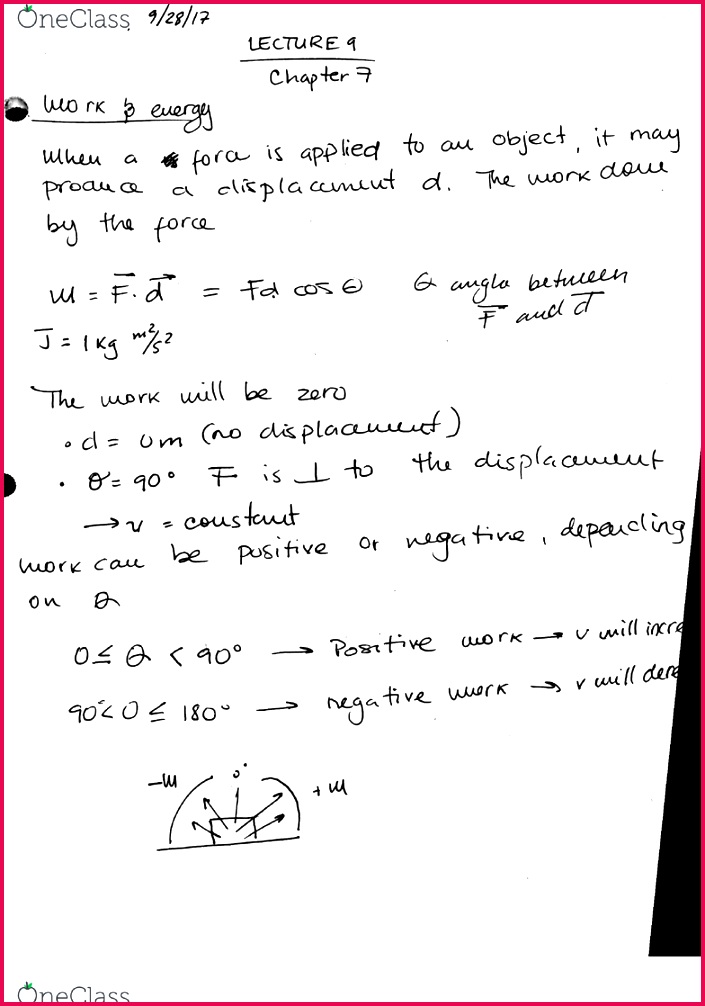 OneClass 9/28/17
LECTURE 9
Chapter 7
Work & energy
When a force is applied to an object, it may
produce a displacement d. The work done
by the force
W = F⃗ · d⃗ = Fd cos θ θ angle between
F⃗ and d⃗
J = 1 kg m²/s²
The work will be zero
• d = 0m (no displacement)
• θ = 90° F is ⊥ to the displacement
→ v = constant
work can be positive or negative, depending
on θ
0 ≤ θ < 90° → Positive work → v will incre
90° < θ ≤ 180° → negative work → v will decre
-W 0° +W
OneClass